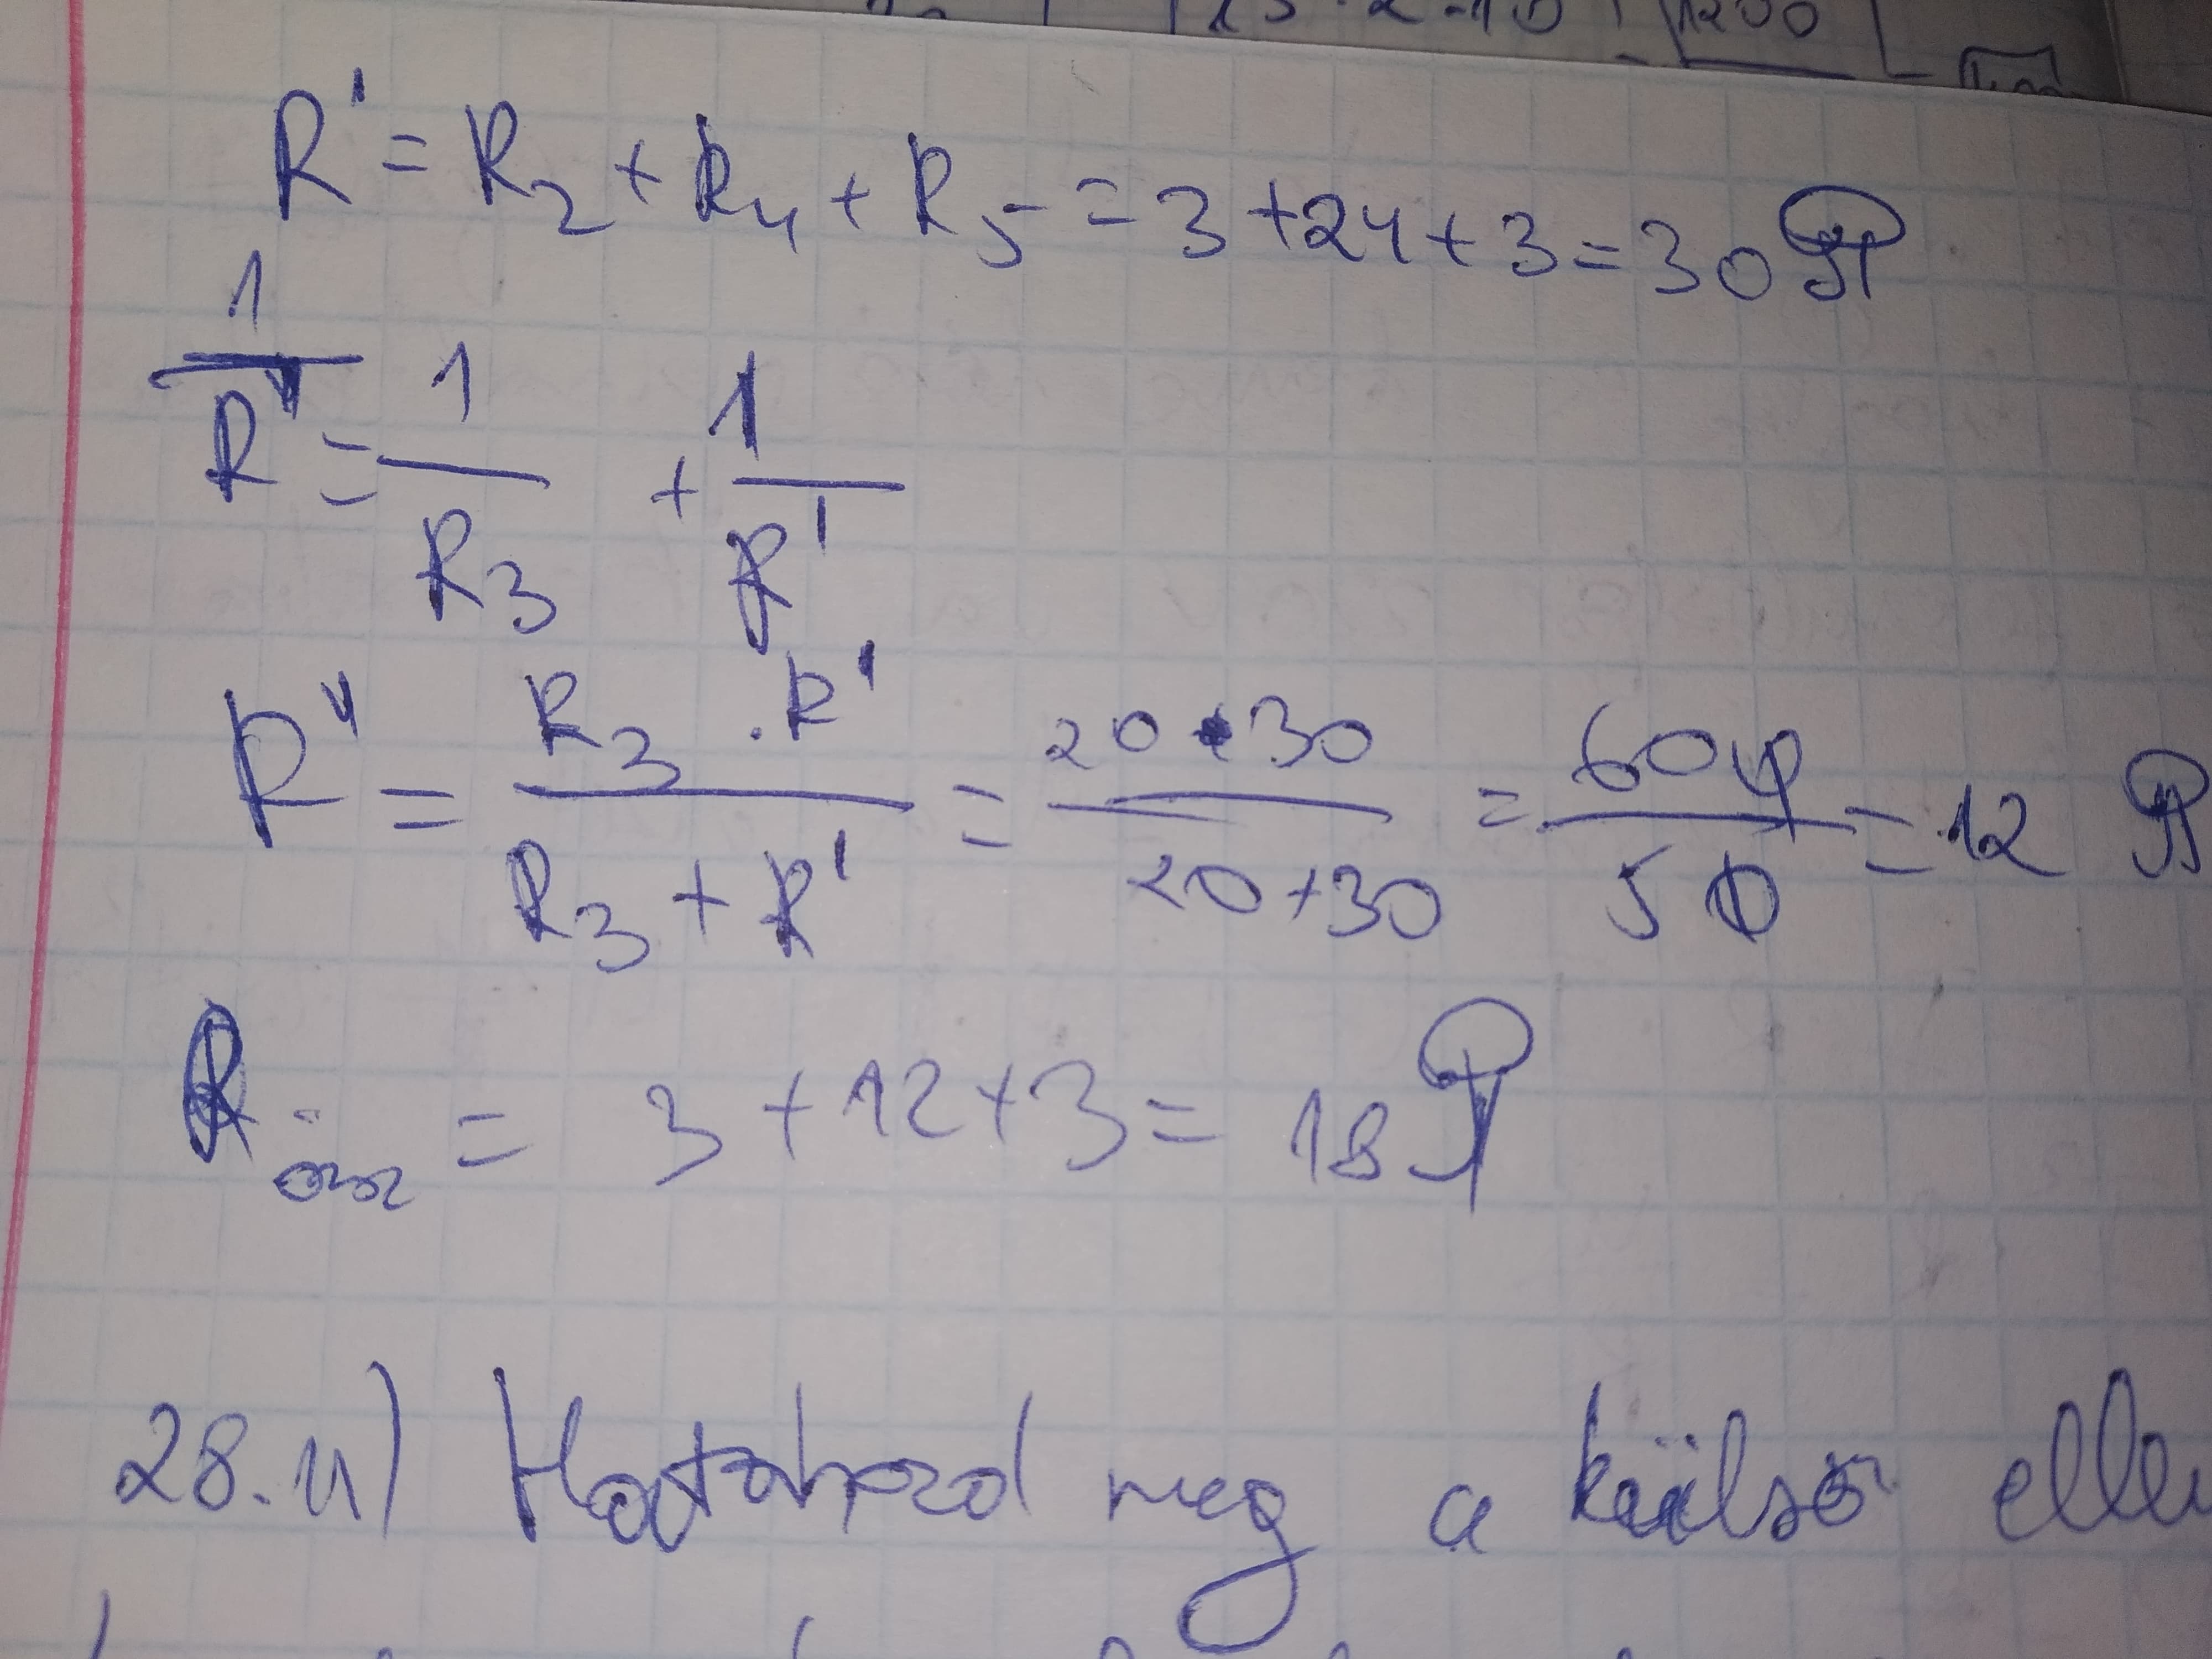 15·2·10 1200
R' = R₂ + R₄ + R₅ = 3 + 24 + 3 = 30 Ω
1/R" = 1/R₃ + 1/R'
R" = R₃ · R' / R₃ + R' = 20 · 30 / 20 + 30 = 600 / 50 = 12 Ω
Rössz = 3 + 12 + 3 = 18 Ω
28.11) Határozd meg a külső elle